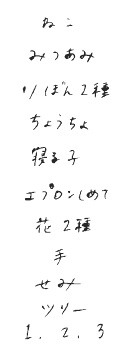 ねこ
みつあみ
リボン2種
ちょうちょ
寝る子
エプロンしめて
花2種
手
せみ
ツリー
1. 2. 3